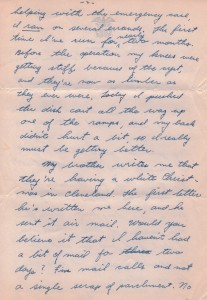 - 2 -
helping with the emergency case,
I ran on several errands, the first
time I've run for nearly two months.
Before the operation my knees were
getting stiff because of the cyst,
and they're now as limber as
they ever were. Today I pushed
the dish cart all the way up
one of the ramps, and my back
didn't hurt a bit so I really
must be getting better.
My brother writes me that
they're having a white Christ-
mas in Cleveland, the first letter
he's written me here, and he
sent it air mail. Would you
believe it that I haven't had
a bit of mail for two
days? Five mail calls and not
a single scrap of parchment. No